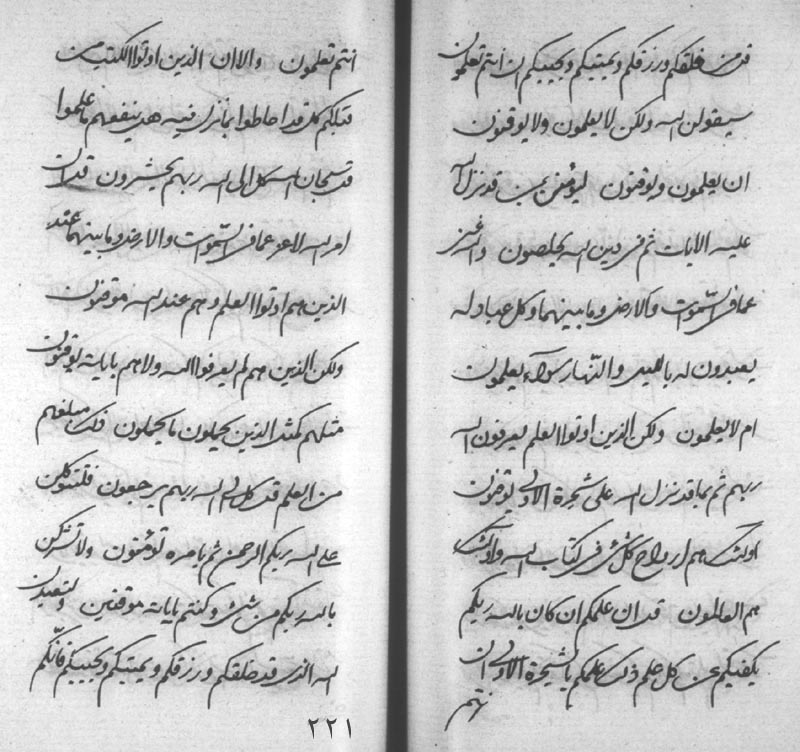 قل من خلقكم ورزقكم ويميتكم ويحييكم ان أنتم تعلمون
سيقولن الله ولكن لا يعلمون ولا يوقنون
ان يعلمون ويوقنون ليؤمنن بمن قد نزل الله
عليه الايات ثم في دين الله يخلصون والله غني
عما في السموات والارض وما بينهما وكل عباد له
يعبدون له بالليل والنهار سواء يعلمون
ام لا يعلمون ولكن الذين اوتوا العلم يعرفون الله
ربهم ثم بما قد نزل الله على شجرة الاولى يوقنون
اولئك هم ارواح كل شئ في كتاب الله واولئك
هم العالمون قل ان علمكم ان كان بالله ربكم
يكفيكم عن كل علم ذلك علمكم بالشجرة الاولى ان
انتم
انتم تعلمون والا ان الذين اوتوا الكتب من
قبلكم كل قد احاطوا بما نزل فيه هل ينفعهم ما علموا
قل سبحان الله كل الى الله ربهم يحشرون قل ان
امر الله لاعز عما في السموات والارض وما بينهما عند
الذين هم اوتوا العلم وهم عند الله موقنون
ولكن الذين هم لم يعرفوا الله ولا هم باياته يوقنون
مثلهم كمثل الذين يحملون ما يحملون ذلك مبلغهم
من العلم قل كل الى الله ربهم يرجعون فلتتوكلن
على الله ربكم الرحمن ثم بامره تؤمنون ولا تشركن
بالله ربكم من شئ وكنتم باياته موقنين ولتعبدن
الله الذي قد خلقكم ورزقكم ويميتكم ويحييكم فانكم
٢٢١